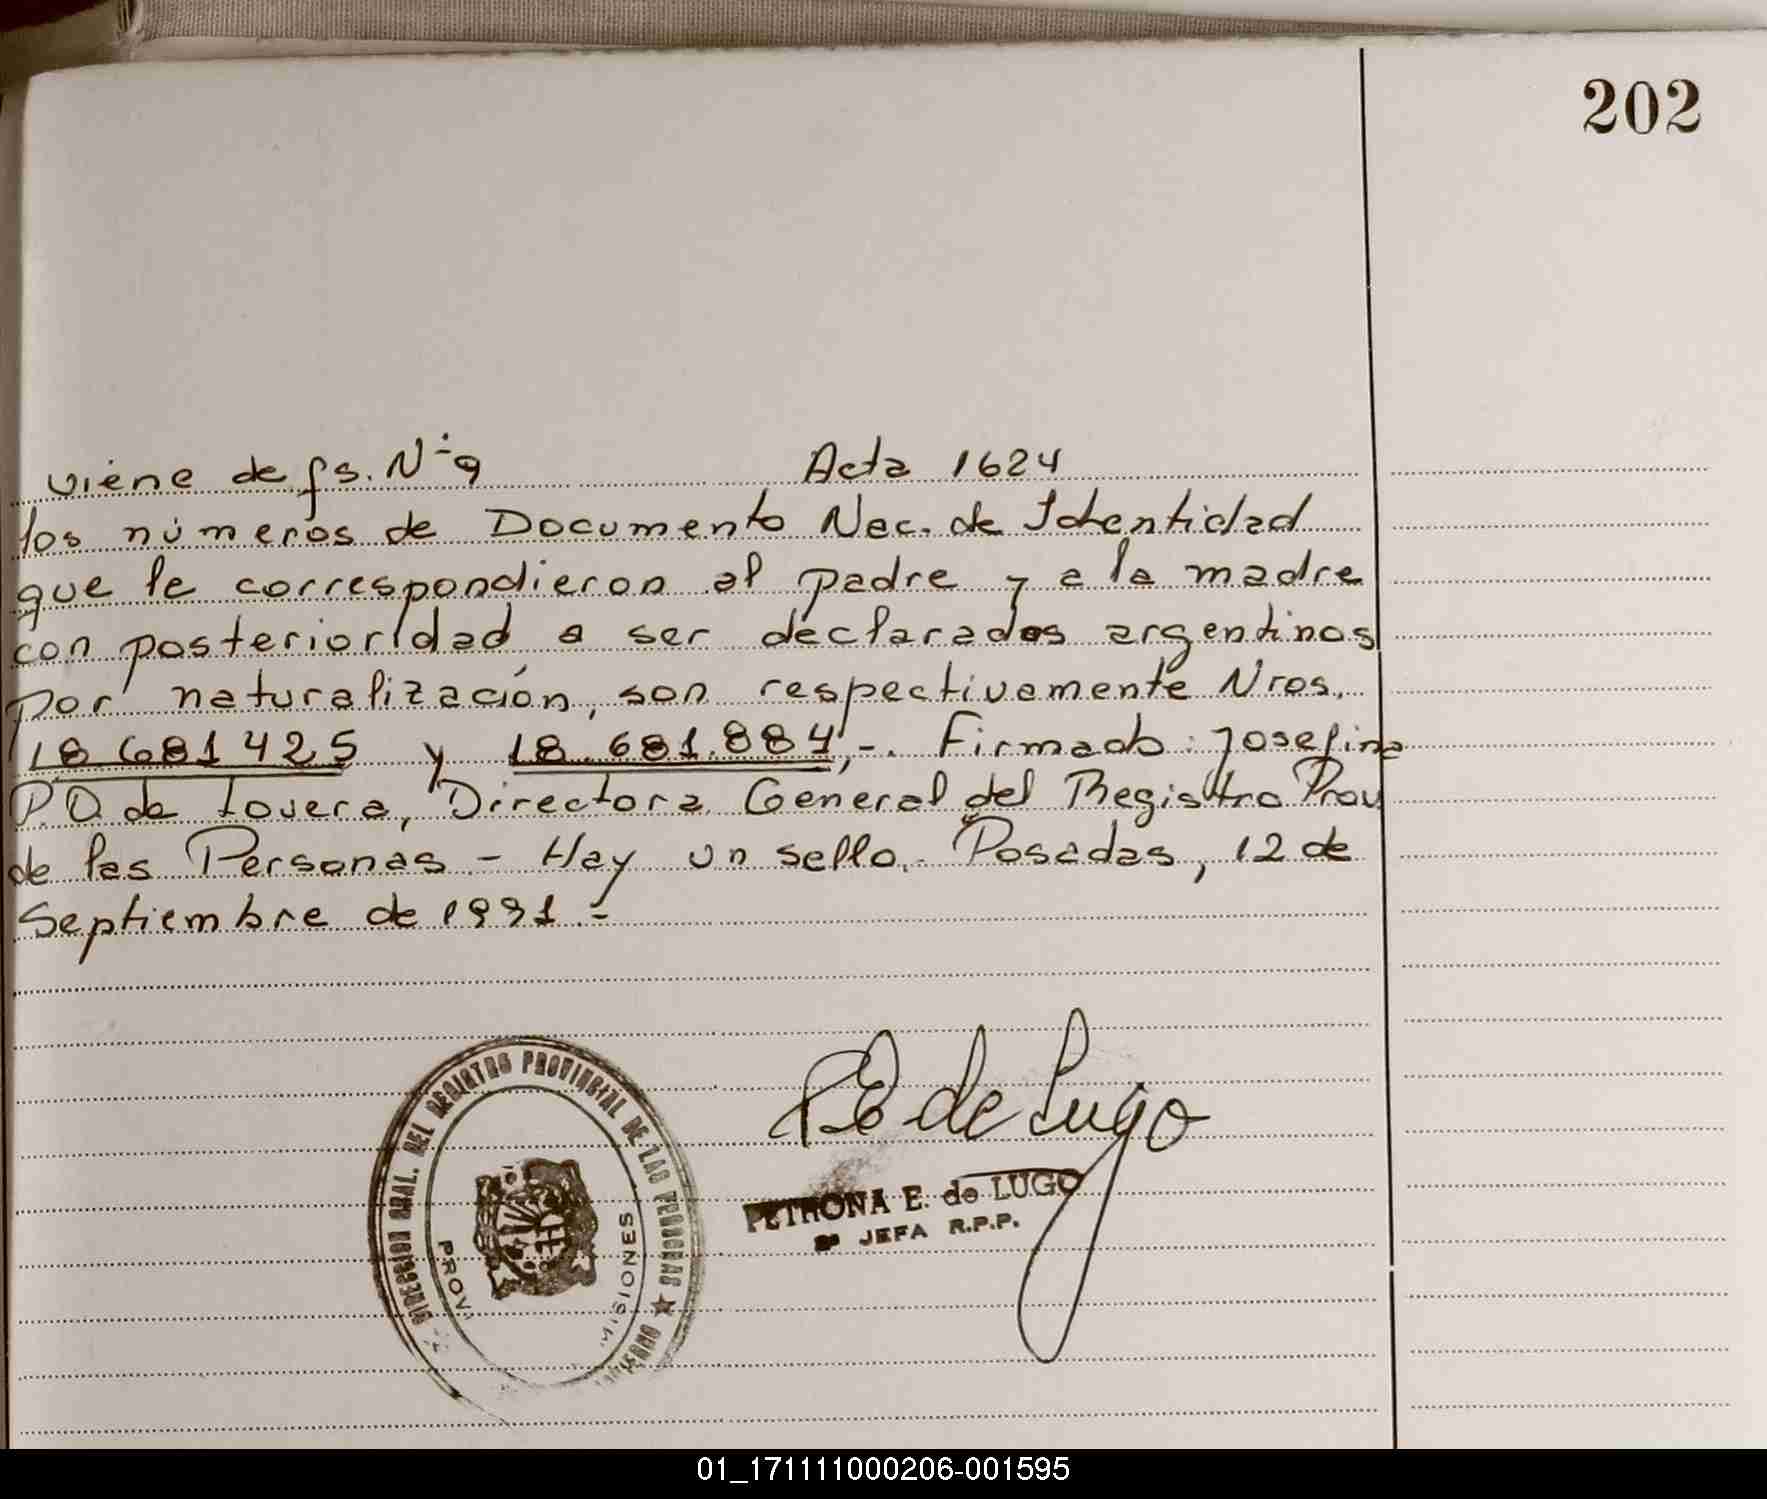 202
viene de fs. Nº 9 Acta 1624
los números de Documento Nac. de Identidad
que le correspondieron al padre y a la madre
con posterioridad a ser declarados argentinos
por naturalización, son respectivamente Nros.
18 681 425 y 18.681.884,-. Firmado: Josefina
P.O. de Lovera, Directora General del Registro Prov
de las Personas - Hay un sello. Posadas, 12 de
Septiembre de 1991.-
P E de Lugo
PETRONA E. de LUGO
JEFA R.P.P.
DIRECCION GRAL. DEL REGISTRO PROVINCIAL DE LAS PERSONAS
PROV.
MISIONES
01_171111000206-001595